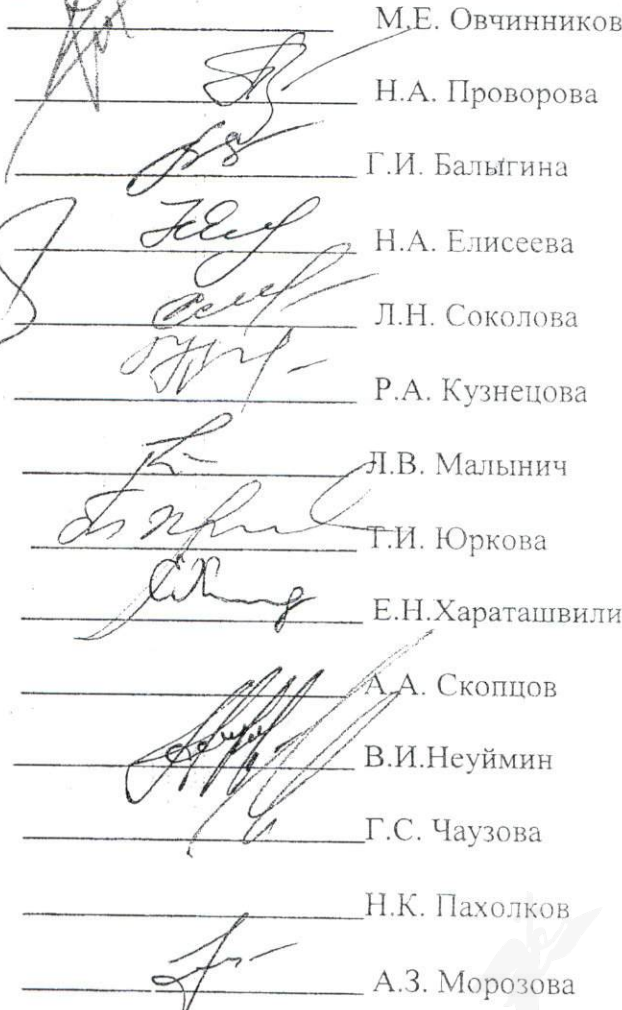 М.Е. Овчинников
Н.А. Проворова
Г.И. Балыгина
Н.А. Елисеева
Л.Н. Соколова
Р.А. Кузнецова
Л.В. Малынич
Т.И. Юркова
Е.Н.Хараташвили
А.А. Скопцов
В.И.Неуймин
Г.С. Чаузова
Н.К. Пахолков
А.З. Морозова